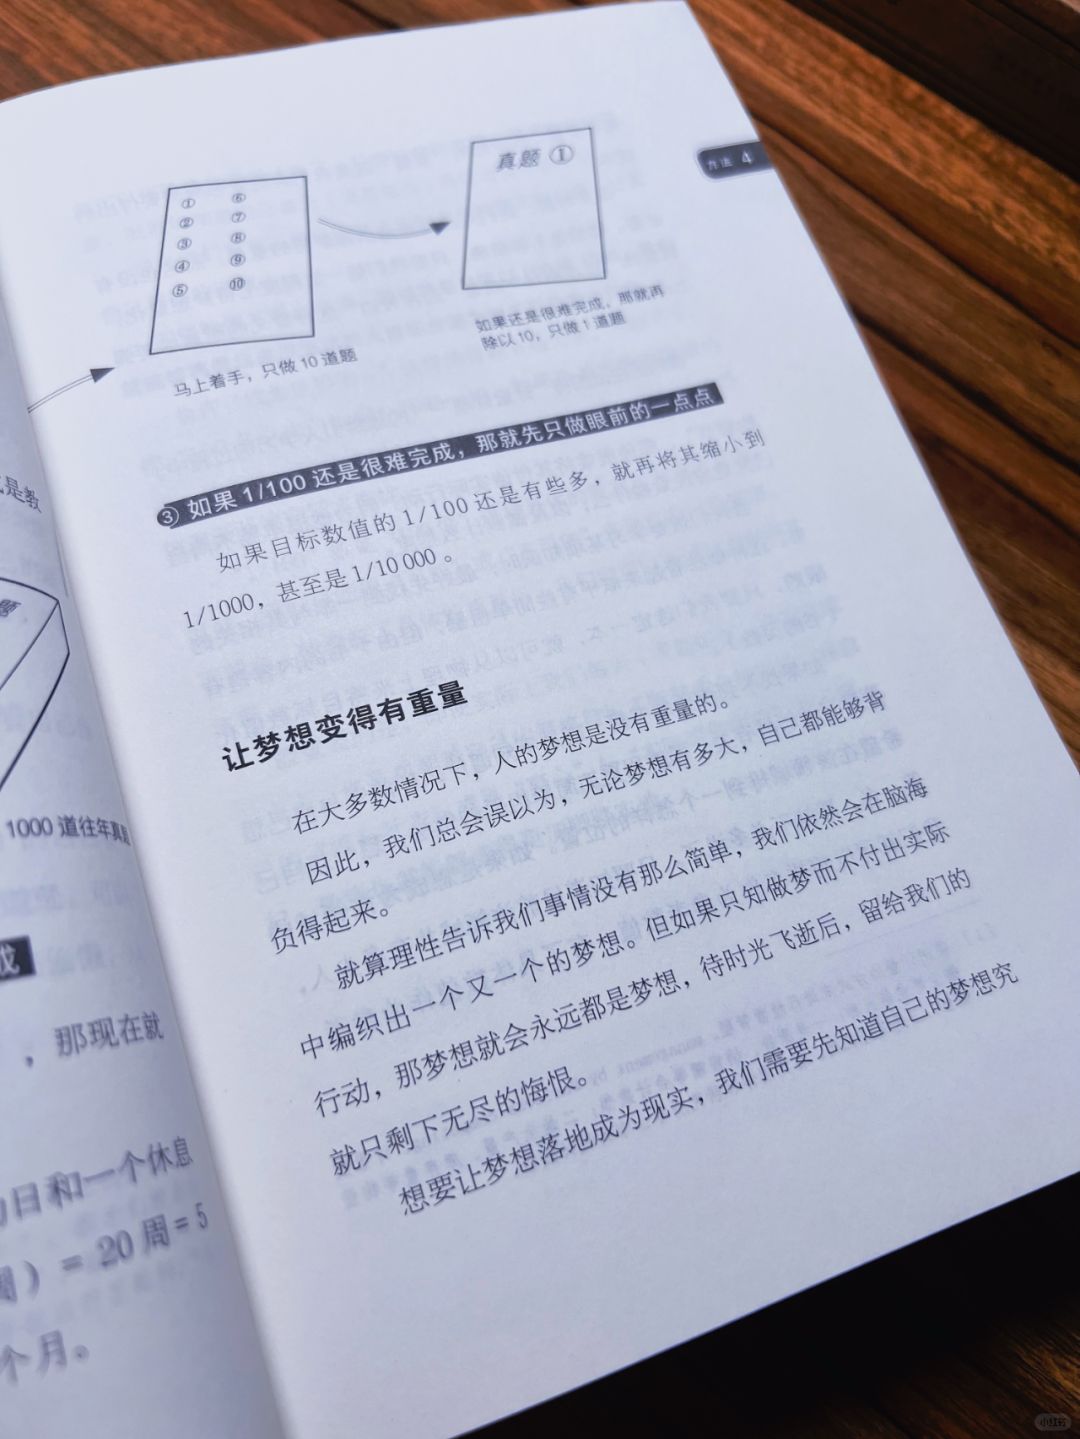 真题 ①
① ⑥
② ⑦
③ ⑧
④ ⑨
⑤ ⑩
4
马上着手，只做 10 道题
如果还是很难完成，那就再
除以 10，只做 1 道题
③ 如果 1/100 还是很难完成，那就先只做眼前的一点点
如果目标数值的 1/100 还是有些多，就再将其缩小到
1/1000，甚至是 1/10 000 。
让梦想变得有重量
在大多数情况下，人的梦想是没有重量的。
因此，我们总会误以为，无论梦想有多大，自己都能够背
负得起来。
就算理性告诉我们事情没有那么简单，我们依然会在脑海
中编织出一个又一个的梦想。但如果只知做梦而不付出实际
行动，那梦想就会永远都是梦想，待时光飞逝后，留给我们的
就只剩下无尽的悔恨。
想要让梦想落地成为现实，我们需要先知道自己的梦想究
是教
题
1000 道往年真题
成
，那现在就
日和一个休息
周）= 20 周 = 5
个月。
小红书